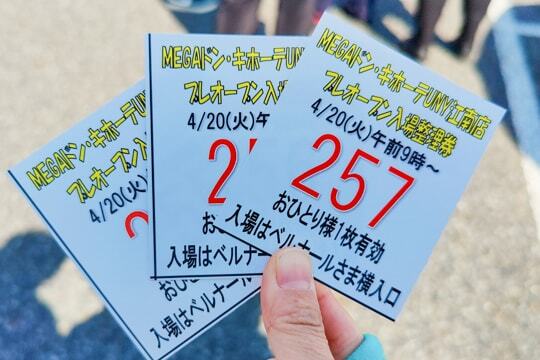 MEGAドン・キホーテUNY江南店
プレオープン入場整理券
4/20(火)午前9時～
257
おひとり様1枚有効
入場はベルナールさま横入口
MEGAドン・キホーテUN
プレオープン入場
4/20(火)午
2
お
入場はベルナー
MEGAドン・キホーテUNY
プレオープン入場
4/20(火)
おひ
入場はベルナー